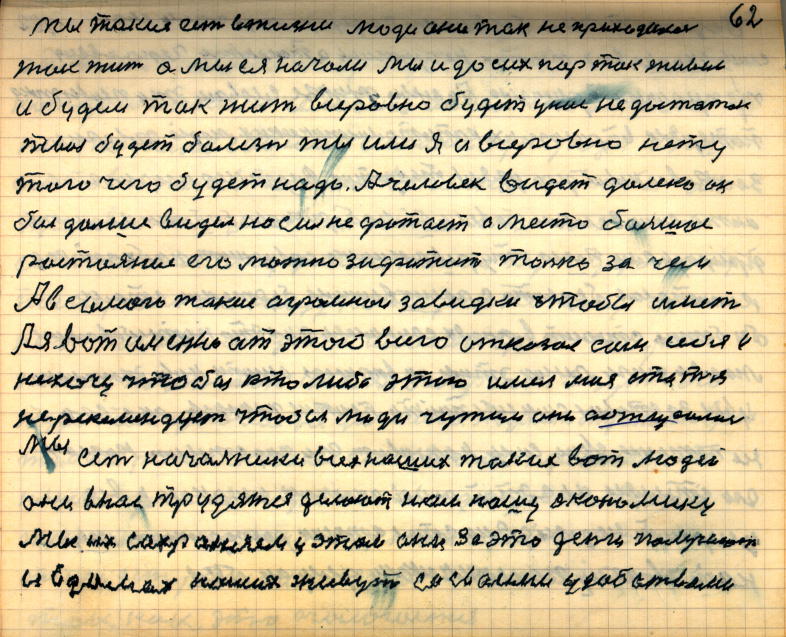 62
мы такие ест в жизни люди они так не приходили
так жит а мы ся начали мы и до сих пар так живем
и будем так жит вчеровно будет у нас недостаток
твоя будет болизн ты или я а вчеровно нету
того чего будет надо. А человек видет далеко он
бы дальше видел но сил не фатает а место большое
растояние его можно зафатит толко за чем
А в самого такие агромной завидки чтобы имет
А я вот именно ат этого всего отказал сам себя и
нехочу чтобы кто либо этаю имел моя статя
нерекомендует чтобы люди чужим они
мы ест начальники всех наших таких вот людей
они в нас трудятся делают нам нашу экономику
мы их сохраняем у этом они за это денги получают
и в домах наших живут со своими удобствами